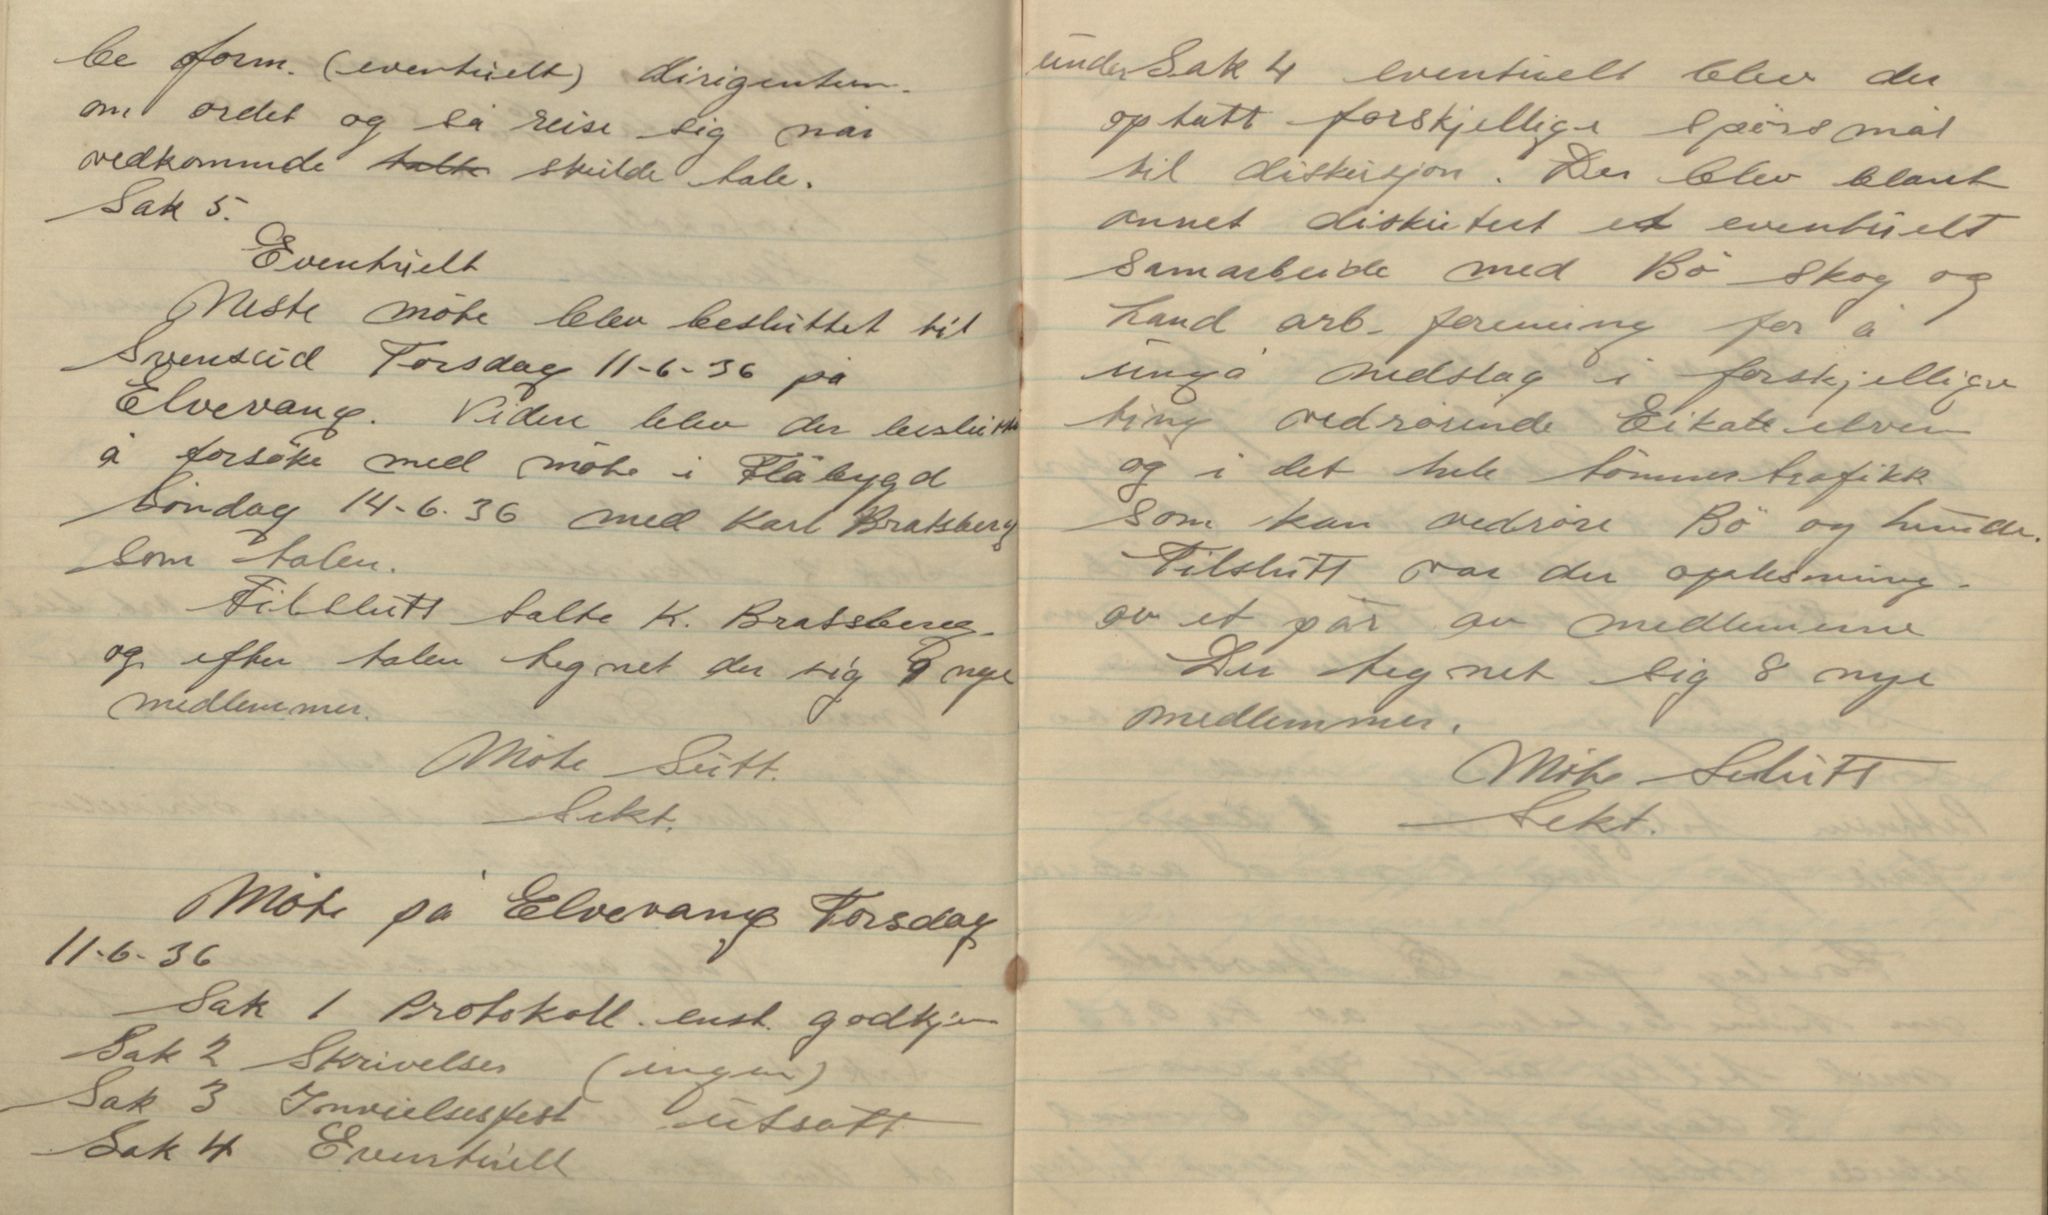 be form. (eventuelt) dirigenten
om ordet og så reise sig når
vedkommende talte skulde tale.
Sak 5.
Eventuelt
Neste møte blev besluttet til
Svenseid Torsdag 11-6-36 på
Elvevang. Videre blev der besluttet
å forsöke med möte i Flåbygd
Söndag 14-6-36 med Karl Bratsberg
som taler.
Tilslutt talte K. Bratsberg
og efter talen tegnet der sig 9 nye
medlemmer.
Möte Slutt.
Sekt.
Møte på Elvevang Torsdag
11-6-36
Sak 1 Protokoll enst. godkjen
Sak 2 Skrivelser (ingen)
Sak 3 Innvielsesfest utsatt
Sak 4 Eventuelt
under Sak 4 eventuelt blev der
optatt forskjellige spörsmål
til diskusjon. Der blev blant
annet diskutert et eventuelt
samarbeide med Bö skog og
Land arb. forening for å
ungå nedslag i forskjellige
ting vedrörende Eikate elven
og i det hele tömmertrafikk
som kan vedröre Bö og Lunde.
Tilslutt var der oplesning
av et par av medlemmene
Der tegnet sig 8 nye
medlemmer.
Möte Slutt
Sekt.